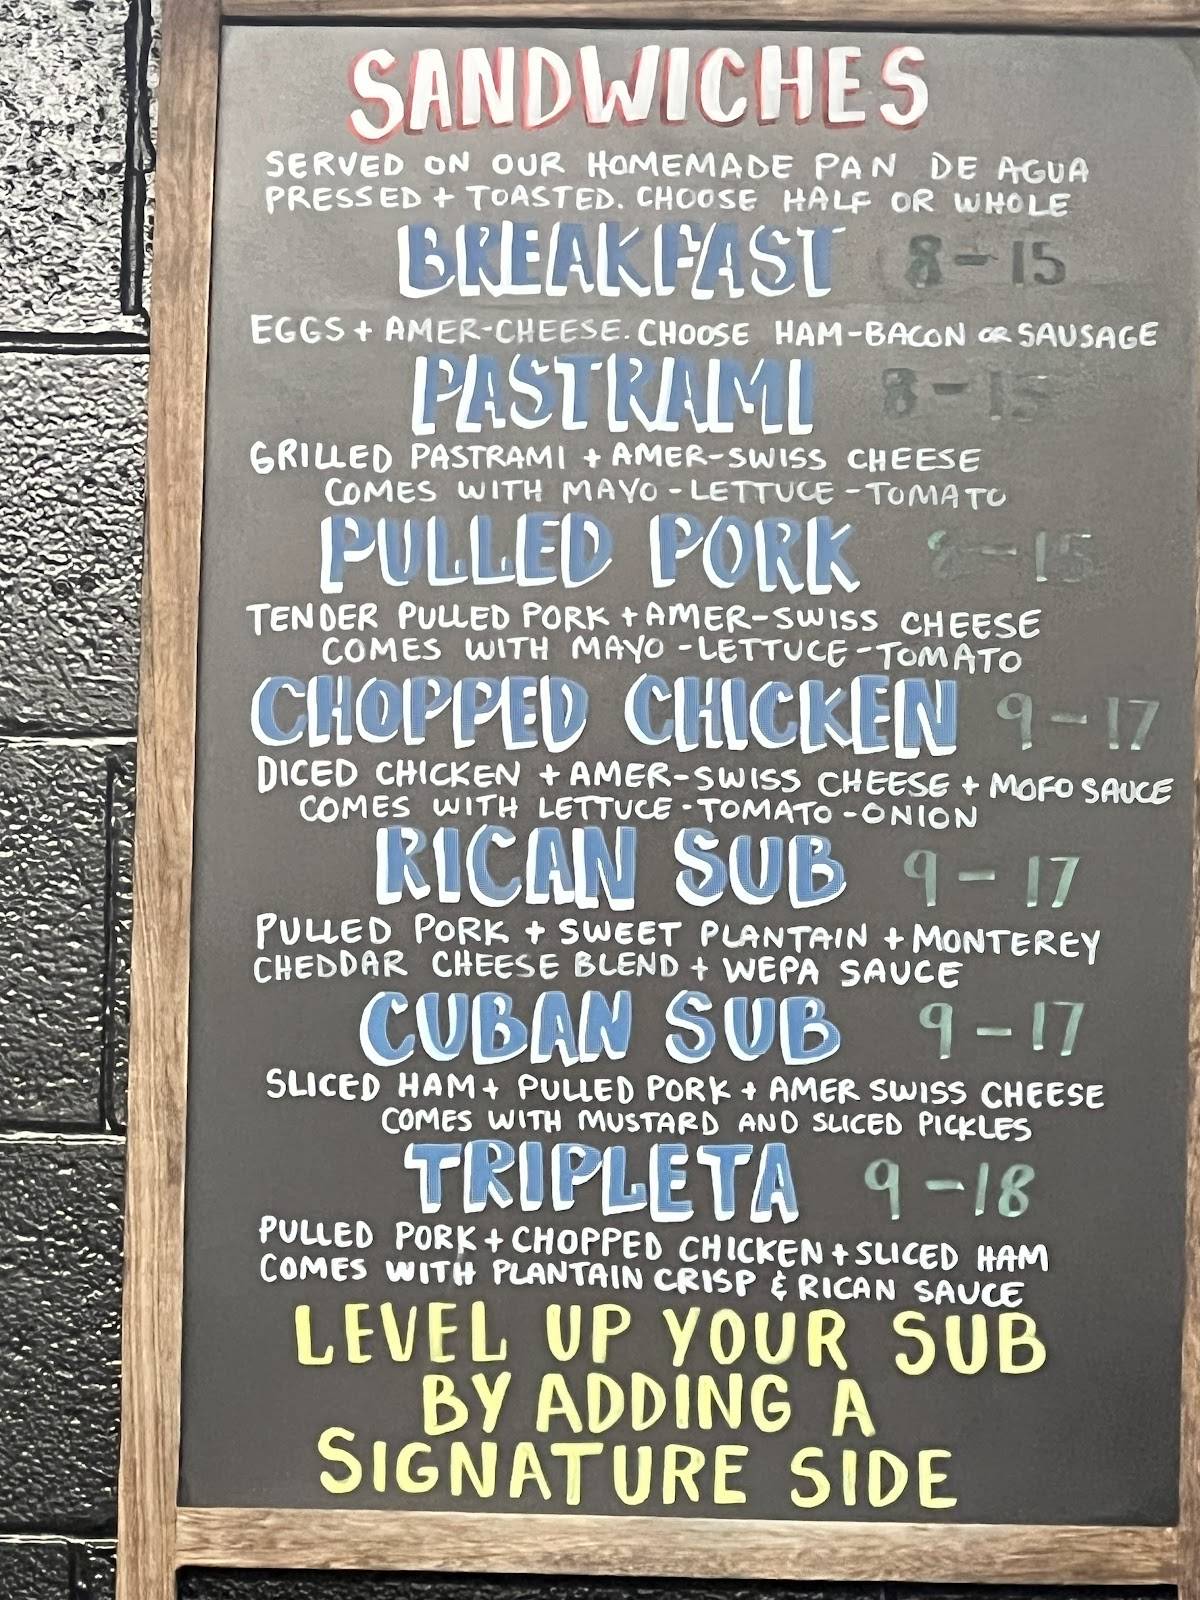 SANDWICHES
SERVED ON OUR HOMEMADE PAN DE AGUA
PRESSED + TOASTED. CHOOSE HALF OR WHOLE
BREAKFAST 8-15
EGGS + AMER-CHEESE. CHOOSE HAM-BACON OR SAUSAGE
PASTRAMI 8-15
GRILLED PASTRAMI + AMER-SWISS CHEESE
COMES WITH MAYO-LETTUCE-TOMATO
PULLED PORK 8-15
TENDER PULLED PORK + AMER-SWISS CHEESE
COMES WITH MAYO-LETTUCE-TOMATO
CHOPPED CHICKEN 9-17
DICED CHICKEN + AMER-SWISS CHEESE + MOFO SAUCE
COMES WITH LETTUCE-TOMATO-ONION
RICAN SUB 9-17
PULLED PORK + SWEET PLANTAIN + MONTEREY
CHEDDAR CHEESE BLEND + WEPA SAUCE
CUBAN SUB 9-17
SLICED HAM + PULLED PORK + AMER SWISS CHEESE
COMES WITH MUSTARD AND SLICED PICKLES
TRIPLETA 9-18
PULLED PORK + CHOPPED CHICKEN + SLICED HAM
COMES WITH PLANTAIN CRISP & RICAN SAUCE
LEVEL UP YOUR SUB
BY ADDING A
SIGNATURE SIDE